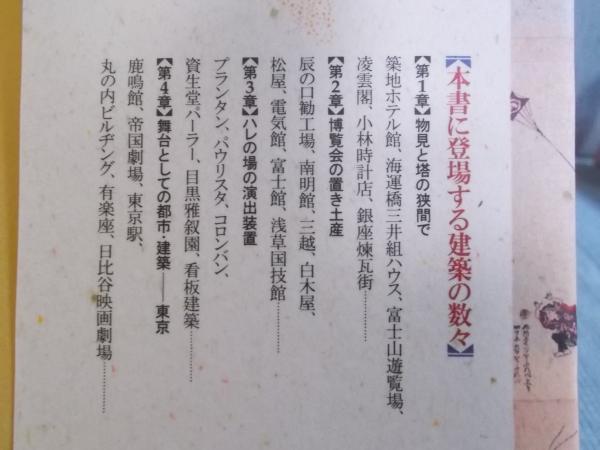 【本書に登場する建築の数々】
【第1章】物見と塔の狭間で
築地ホテル館、海運橋三井組ハウス、富士山遊覧場、
凌雲閣、小林時計店、銀座煉瓦街…………
【第2章】博覧会の置き土産
辰の口勧工場、南明館、三越、白木屋、
松屋、電気館、富士館、浅草国技館…………
【第3章】ハレの場の演出装置
プランタン、パウリスタ、コロンバン、
資生堂パーラー、目黒雅叙園、看板建築…………
【第4章】舞台としての都市・建築——東京
鹿鳴館、帝国劇場、東京駅、
丸の内ビルヂング、有楽座、日比谷映画劇場…………